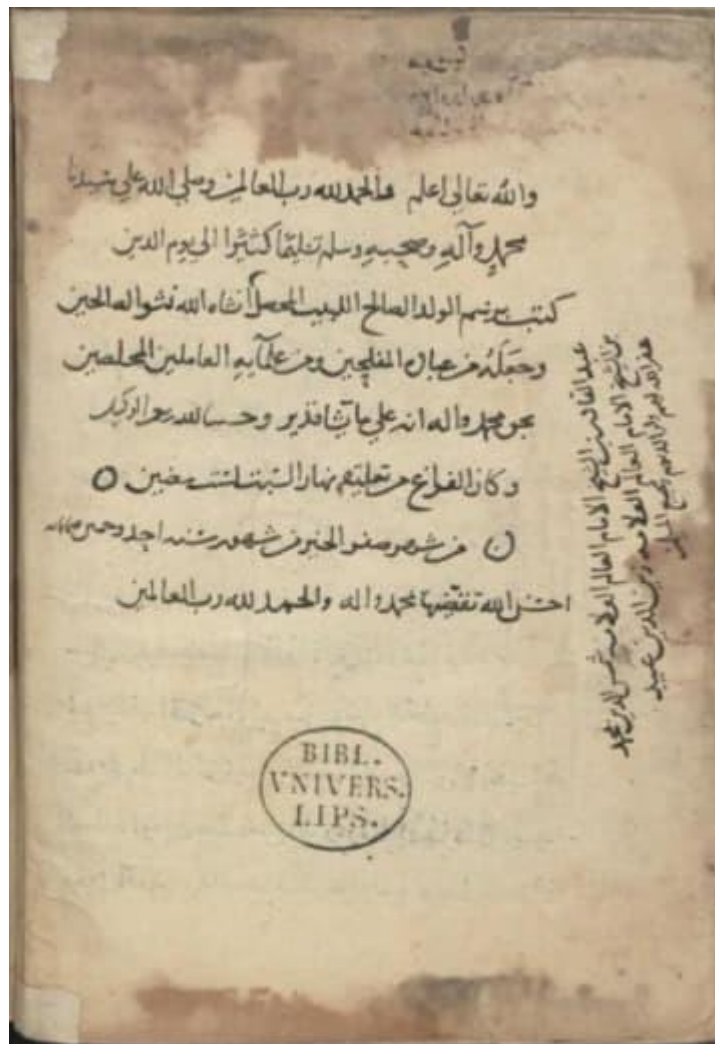 والله تعالى اعلم والحمد لله رب العالمين وصلى الله على سيدنا
محمد وآله وصحبه وسلم تسليما كثيرا الى يوم الدين
كتب برسم الولد الصالح اللبيب المحصل انشاه الله نشو الصالحين
وجعله من عباد المفلحين ومن علمآيه العاملين المخلصين
بحق محمد واله انه على ما يشا قدير وحسبنا الله ونعم الوكيل
وكان الفراغ من تعليقه نهار السبت لست مضين
من شهر صفر الخير من شهور سنه احد وخمسين
احسن الله تقضيها بمحمد واله والحمد لله رب العالمين
عبد القادر بن الشيخ الامام العالم العلامه شمس الدين محمد
بن الشيخ الامام العالم العلامه زين الدين عبيد
غفر الله لهم ولوالديهم ولجميع المسلمين
BIBL.
VNIVERS.
LIPS.